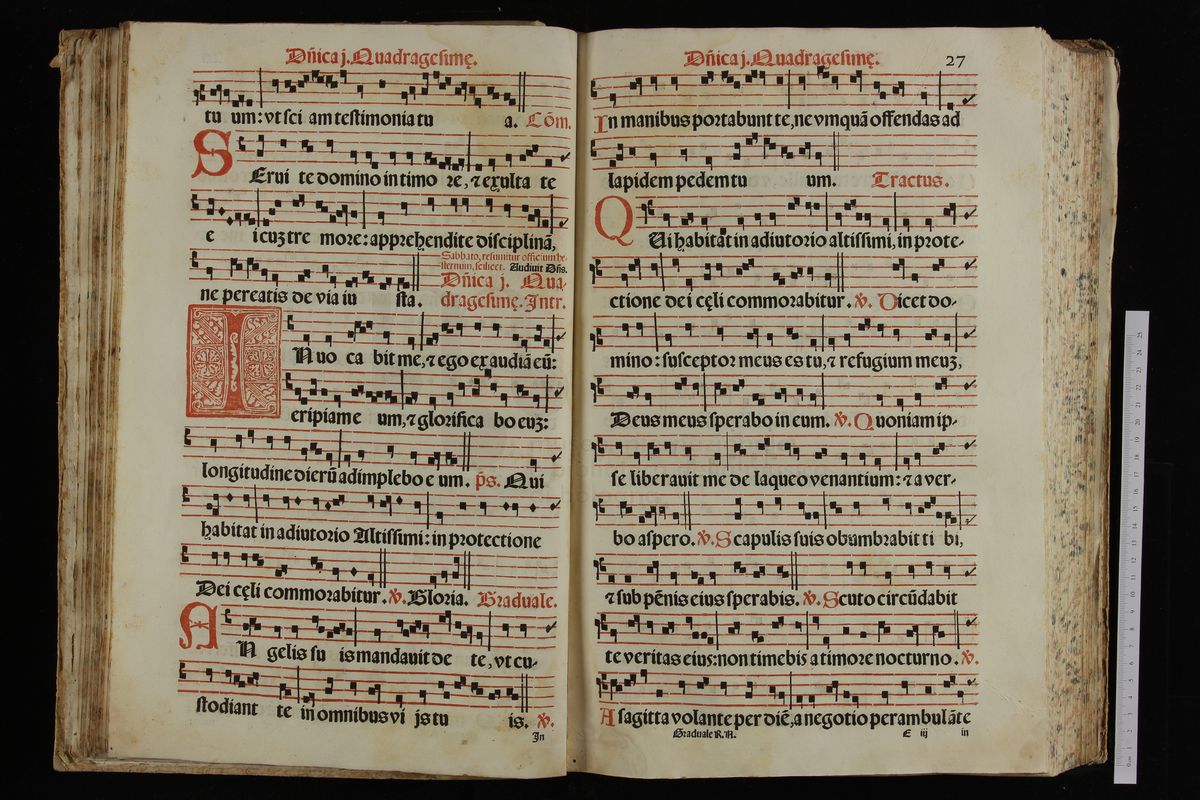 Dñica j. Quadragesimę.
tu um: vt sci am testimonia tu a. Cõm.
SErui te domino in timo re, ⁊ exulta te
e icuȝ tre more: apprehendite disciplinã,
Sabbato, resumitur officium he-
sternum, scilicet. Audiuit Dñs.
ne pereatis de via iu sta. Dñica j. Qua-
dragesimę. Intr.
INuo ca bit me, ⁊ ego exaudiã eũ:
eripiam e um, ⁊ glorifica bo euȝ:
longitudine dierũ adimplebo e um. p̃s. Qui
habitat in adiutorio Altissimi: in protectione
Dei cęli commorabitur. ℣. Gloria. Graduale.
AN gelis su is mandauit de te, vt cu-
stodiant te in omnibus vi js tu is. ℣.
In
Dñica j. Quadragesimę. 27
In manibus portabunt te, ne vmquã offendas ad
lapidem pedem tu um. Tractus.
QUi habitat in adiutorio altissimi, in prote-
ctione dei cęli commorabitur. ℣. Dicet do-
mino: susceptor meus es tu, ⁊ refugium meuȝ,
Deus meus sperabo in eum. ℣. Quoniam ip-
se liberauit me de laqueo venantium: ⁊ a ver-
bo aspero. ℣. Scapulis suis obumbrabit ti bi,
⁊ sub pẽnis eius sperabis. ℣. Scuto circũdabit
te veritas eius: non timebis a timore nocturno. ℣.
A sagitta volante per diẽ, a negotio perambulãte
Graduale R. A. E iij in